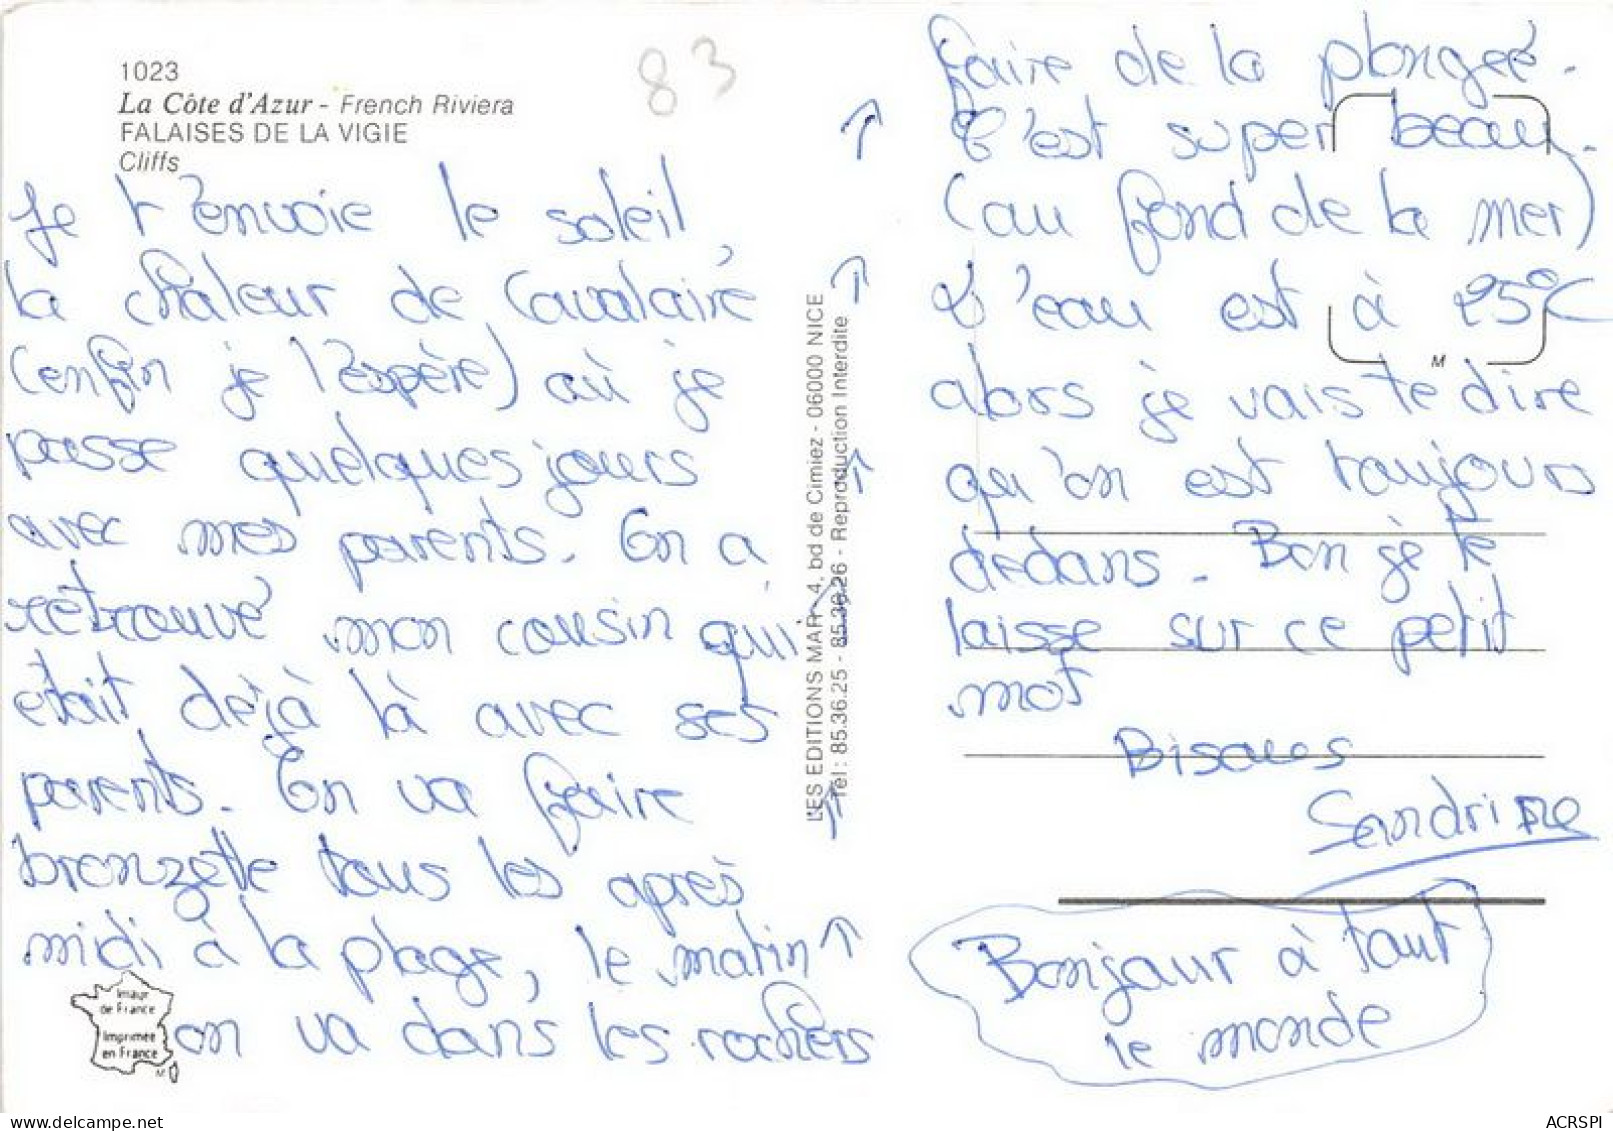 1023
La Côte d'Azur - French Riviera
FALAISES DE LA VIGIE
Cliffs
83
Je t'envoie le soleil,
la chaleur de Cavalaire
(enfin je l'espère) où je
passe quelques jours
avec mes parents. On a
retrouvé mon cousin qui
était déjà là avec ses
parents. On va faire
bronzette tous les après
midi à la plage, le matin
on va dans les rochers
Imprimée
en France
LES EDITIONS MAR - 4, bd de Cimiez - 06000 NICE
Tél : 85.36.25 - 85.36.26 - Reproduction Interdite
faire de la plongée.
C'est super beau.
(au fond de la mer)
L'eau est à 25°C
M
alors je vais te dire
qu'on est toujours
dedans. Bon je te
laisse sur ce petit
mot
Bisoues
Sandrine
Bonjour à tout
le monde
delcampe.net
ACRSPI